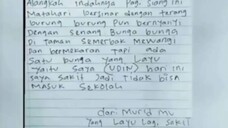 Alangkah indahnya Pagi siang ini
Matahari bersinar dengan terang
burung burung pun bernyanyi
Dengan senang Bunga bunga
Di taman semerbak mewangi
Dan bermekaran tapi ada
Satu bunga yang Layu
yaitu saya (UDIM) Hari ini
saya sakit Jadi Tidak bisa
Masuk Sekolah
dari Murid mu
Yang Layu Lagi sakit